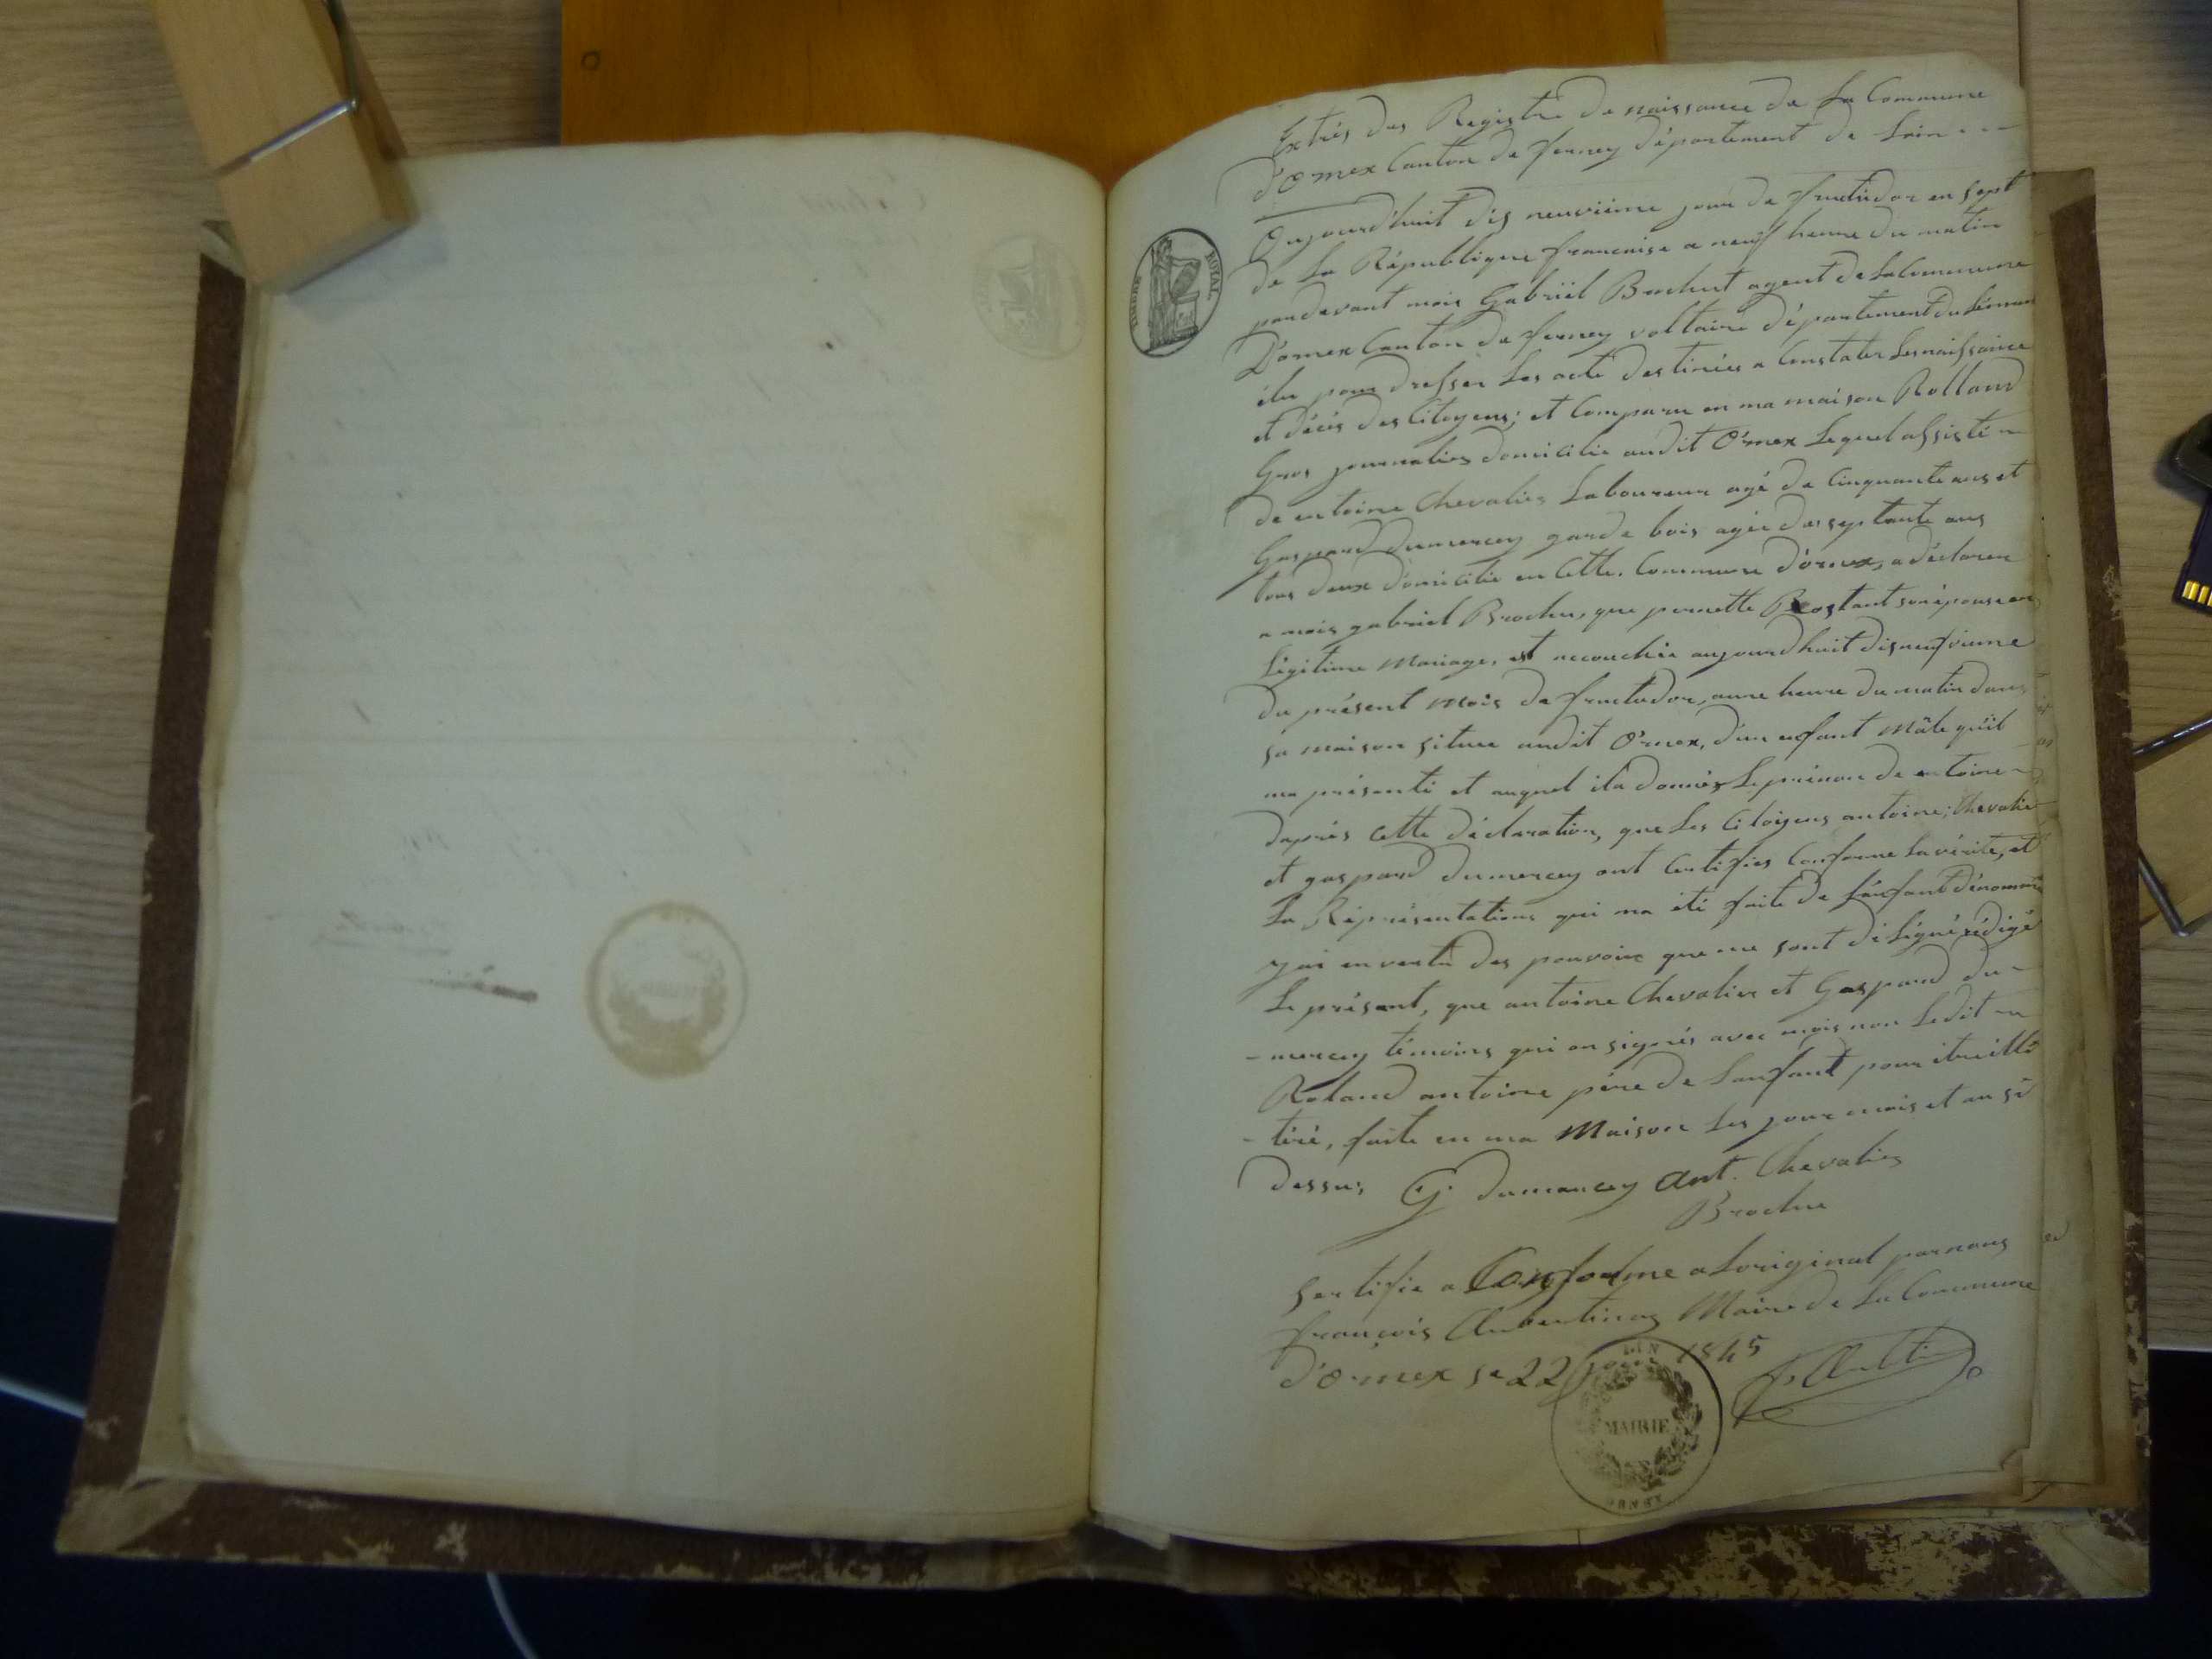 Extrés des Registre de naissance de La Commune
d'Ornex Canton de ferney département de Lain
TIMBRE ROYAL
Oujourd'huit dis neuvième jour de fructidor an sept
de La République francaise a neuf heure du matin
pardevant mois Gabriël Brochut agent de La Commune
D'ornex Canton de ferney voltaire département du Léman
élu pour dresser Les acte destinées a Constater Les naissance
et décés des Citoyens; et Comparu en ma maison Rolland
Gros journalier domicilié audit Ornex Lequel assisté
de entoine Chevalier Laboureur agé de Cinquante ans et
Gaspard Dumercey garde bois agée de septante ans
tous deux domicilié en Cette Commune d'ornex, a déclarer
a mois gabriel Brochu, que pernette Rostant son épouse en
Légitime Mariage, est accouchée aujourdhuit disneufvième
du présent Mois de fructudor, aune heure du matin dans
sa maison située audit Ornex, d'un enfant Mâle qu'il
ma présenté et auquel il a donnés Le prénom de entoine
daprès cette déclaration, que Les Citoigens antoine, Chevalier
et gaspard Dumercey ont Certifies Conforme La vérité, et
La Réprésentations qui ma été faite de L'anfant dénommé
j'ai en vertû des pouvoirs que me sont déLégué rédigé
Le présent, que antoine Chevalier et Gaspard du-
-mercey témoins qui on signés avec mois non Ledit
Roland antoine père de Lanfant pour être illé
-téré, faite en ma Maison Les jour mois et an si
dessus G Dumercey Ant. Chevalier
Brochu
Sertifie a Conforme a Loriginal par nous
françois Aubertinaz Maire de La Commune
d'Ornex se 22 1845
MAIRIE